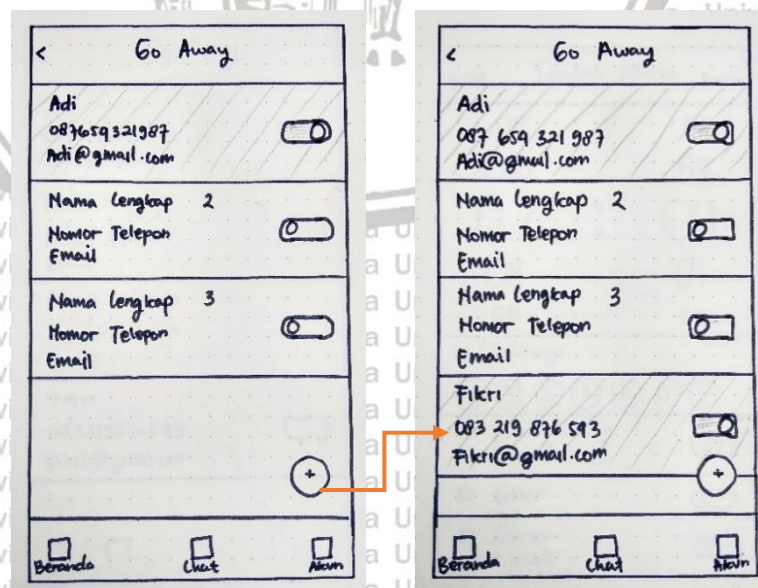 < Go Away
Adi
087659321987
Adi@gmail.com
Nama Lengkap 2
Nomor Telepon
Email
Nama Lengkap 3
Nomor Telepon
Email
+
Beranda Chat Akun
< Go Away
Adi
087 659 321 987
Adi@gmail.com
Nama Lengkap 2
Nomor Telepon
Email
Nama Lengkap 3
Nomor Telepon
Email
Fikri
083 219 876 543
Fikri@gmail.com
+
Beranda Chat Akun